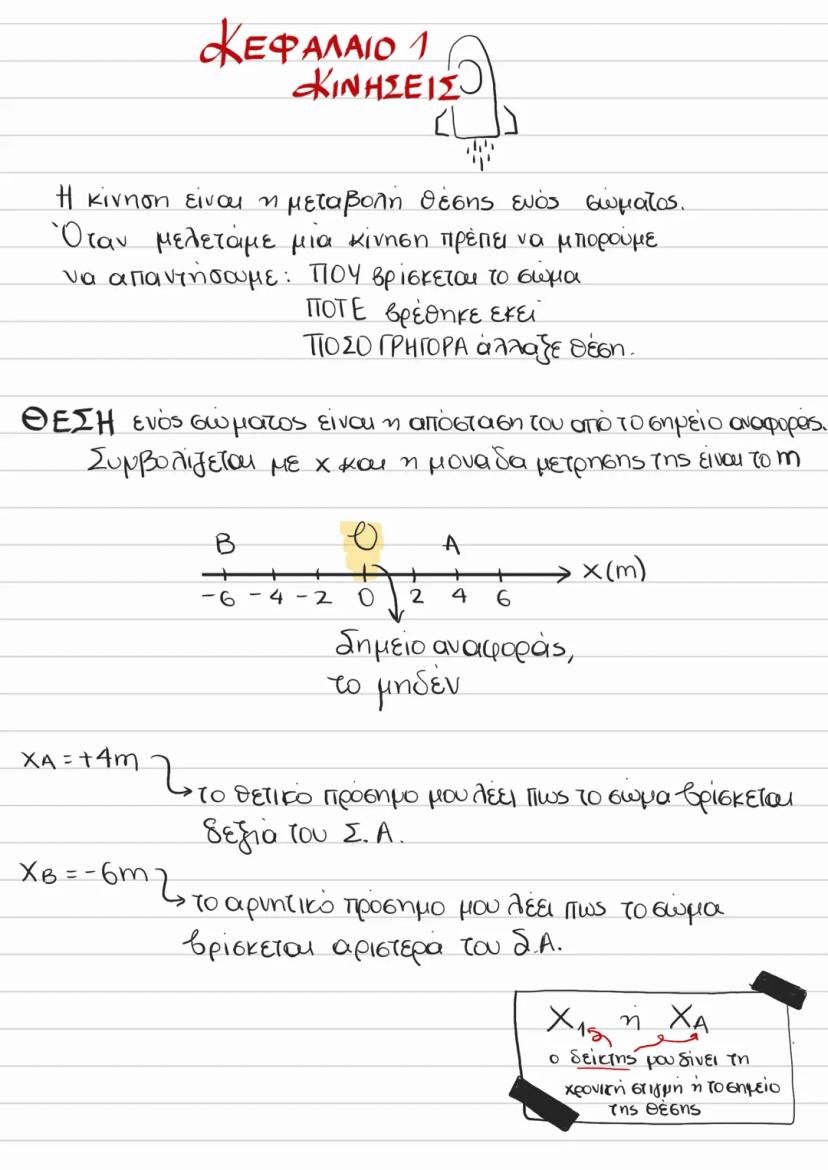 ΚΕΦΑΛΑΙΟ 1
ΚΙΝΗΣΕΙΣ
Η κίνηση είναι η μεταβολή θέσης ενός σώματος.
Όταν μελετάμε μια κίνηση πρέπει να μπορούμε
να απαντήσουμε: ΠΟΥ βρίσκεται το σώμα
ΠΟΤΕ βρέθηκε εκεί
ΠΟΣΟ ΓΡΗΓΟΡΑ άλλαξε θέση.
ΘΕΣΗ ενός σώματος είναι η απόσταση του από το σημείο αναφοράς.
Συμβολίζεται με x και η μονάδα μέτρησης της είναι το m
B Ο A
x(m)
-6 -4 -2 0 2 4 6
Σημείο αναφοράς,
το μηδέν
xA = +4m
το θετικό πρόσημο μου λέει πως το σώμα βρίσκεται
δεξιά του Σ.Α.
xB = -6m
το αρνητικό πρόσημο μου λέει πως το σώμα
βρίσκεται αριστερά του Σ.Α.
x1 ή xA
ο δείκτης μου δίνει τη
χρονική στιγμή ή το σημείο
της θέσης